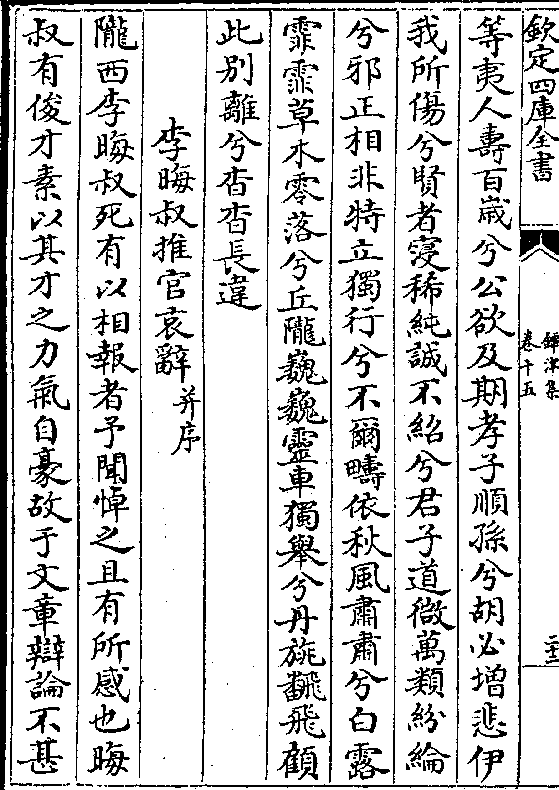 欽定四庫全書
鐔津集
卷十五
等夷人壽百歲兮公欲及期孝子順孫兮胡必增悲伊
我所傷兮賢者寖稀純誠不紹兮君子道微萬類紛綸
兮邪正相非特立獨行兮不爾疇依秋風肅肅兮白露
霏霏草木零落兮丘隴巍巍靈車獨舉兮丹旐翻飛顧
此別離兮杳杳長違
李晦叔推官哀辭并序
隴西李晦叔死有以相報者予聞悼之且有所感也晦
叔有俊才素以其才之力氣自豪故于文章辯論不甚